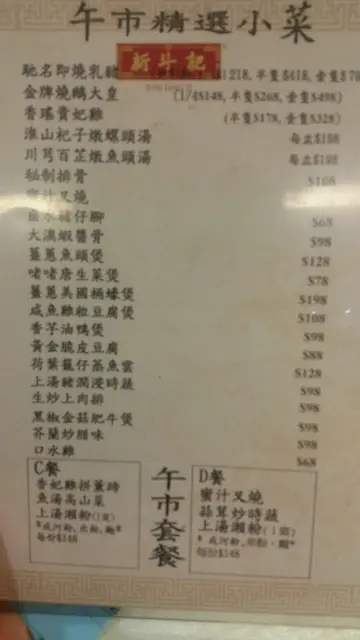 午市精選小菜
新斗記
馳名即燒乳豬 $218, 半隻$418, 全隻$79
金牌燒鵝大皇 (1/4$148, 半隻$268, 全隻$498)
香瑤貴妃雞 (半隻$178, 全隻$328)
淮山杞子燉螺頭湯 每盅$198
川芎百芷燉魚頭湯 每盅$198
秘制排骨 $108
蜜汁叉燒
豬仔腳 $68
大澳蝦醬骨 $98
薑蔥魚頭煲 $128
啫啫唐生菜煲 $78
薑蔥美國桶蠔煲 $198
咸魚雞粒豆腐煲 $108
香芋油鴨煲 $98
黃金脆皮豆腐 $88
荷葉籠仔蒸魚雲 $128
上湯豬潤浸時蔬 $98
生炒上肉排 $98
黑椒金菇肥牛煲 $98
芥蘭炒腊味 $98
口水雞 $68
C餐
香妃雞拼薑蹄
魚湯高山菜
上湯瀨粉(1窩)
*或河粉, 米粉, 麵*
每份$148
午市套餐
D餐
蜜汁叉燒
蒜茸炒時蔬
上湯瀨粉(1窩)
* 或河粉, 米粉, 麵*
每份$148